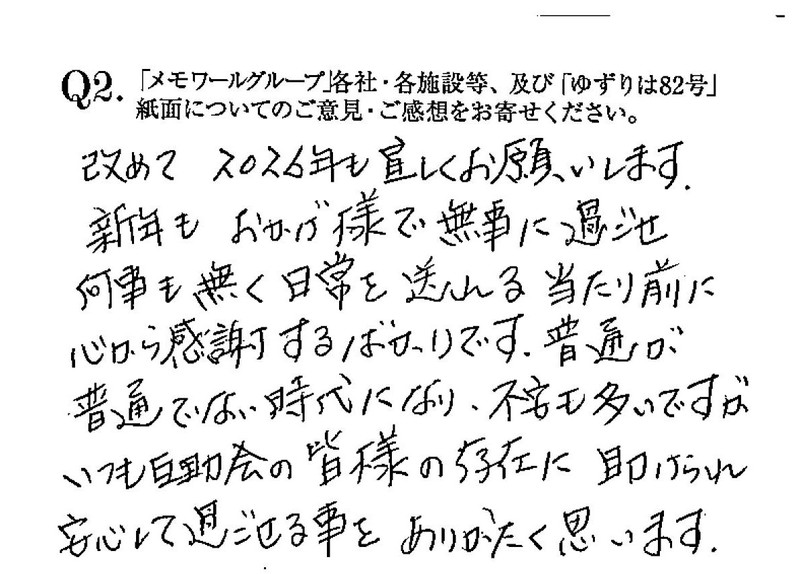 Q2.「メモワールグループ」各社・各施設等、及び「ゆずりは82号」
紙面についてのご意見・ご感想をお寄せください。
改めて 2026年も宜しくお願いします.
新年も おかげ様で無事に過ごせ
何事も無く日常を送れる当たり前に
心から感謝するばかりです.普通が
普通でない時代になり、不安も多いですが
いつも互助会の皆様の存在に助けられ
安心して過ごせる事を ありがたく思います.